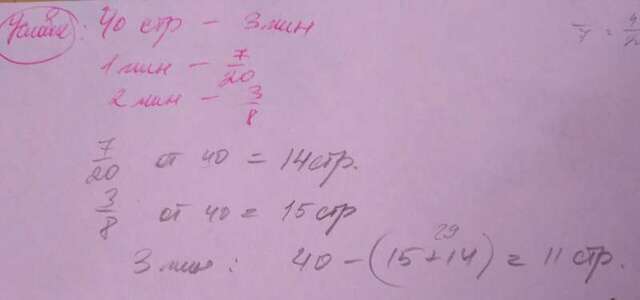 40 стр – 3 мин
1 мин – 7/20
2 мин – 3/8
7/20 от 40 = 14 стр.
3/8 от 40 = 15 стр
29
3 мин: 40 – (15+14) = 11 стр.